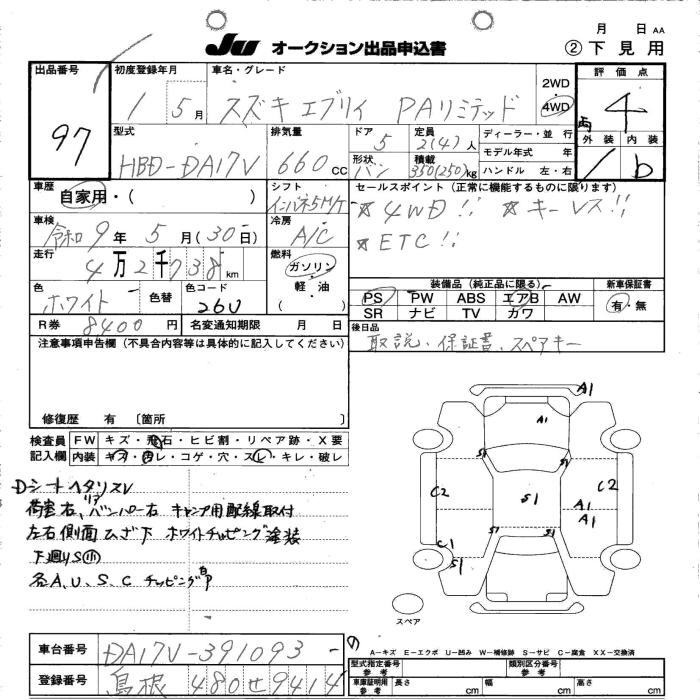 月 日 AA
JU オークション出品申込書
② 下見用
出品番号
97
初度登録年月
1 5月
車名・グレード
スズキ エブリイ PAリミテッド
2WD
4WD
評価点
4
外装 内装
1 b
型式
HBD-DA17V
排気量
660cc
ドア
5
定員
2(4)人
形状
バン
積載
350(250)kg
ディーラー・並行
モデル年式 年
ハンドル 左・右
車歴
自家用・( )
シフト
インパネ5M/T
セールスポイント(正常に機能するものに限ります)
☆4WD!! ☆キーレス!!
☆ETC!!
車検
令和9年5月(30日)
冷房
A/C
走行
4万2千738km
燃料
ガソリン
軽油
( )
色
ホワイト
色替
色コード
26U
装備品(純正品に限る)
PS PW ABS エアB AW
SR ナビ TV カワ
新車保証書
有・無
R券 8400円
名変通知期限 月 日
後日品
取説、保証書、スペアキー
注意事項申告欄(不具合内容等は具体的に記入してください)
修復歴 有 〔箇所 〕
検査員記入欄
FW キズ・飛石・ヒビ割・リペア跡・X要
内装 キズ・汚レ・コゲ・穴・スレ・キレ・破レ
Dシートヘタリスレ
荷室右、リアバンパー右 キャンプ用配線取付
左右側面ひざ下 ホワイトチッピング塗装
下廻りS小
各A、U、S、C チッピング有P
A1
A1
S1 S1
C2 S1 C2
A1
A1
S1 S1
C1
S1
スペア
車台番号
DA17V-391093
登録番号
島根 480せ9414
A－キズ E－エクボ U－凹み W－補修跡 S－サビ C－腐食 XX－交換済
型式指定番号 参考
類別区分番号 参考
車庫証明用 参考
長さ cm 幅 cm 高さ cm